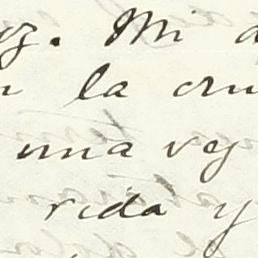 ez. Mi a
n la cru
una vez
rida y